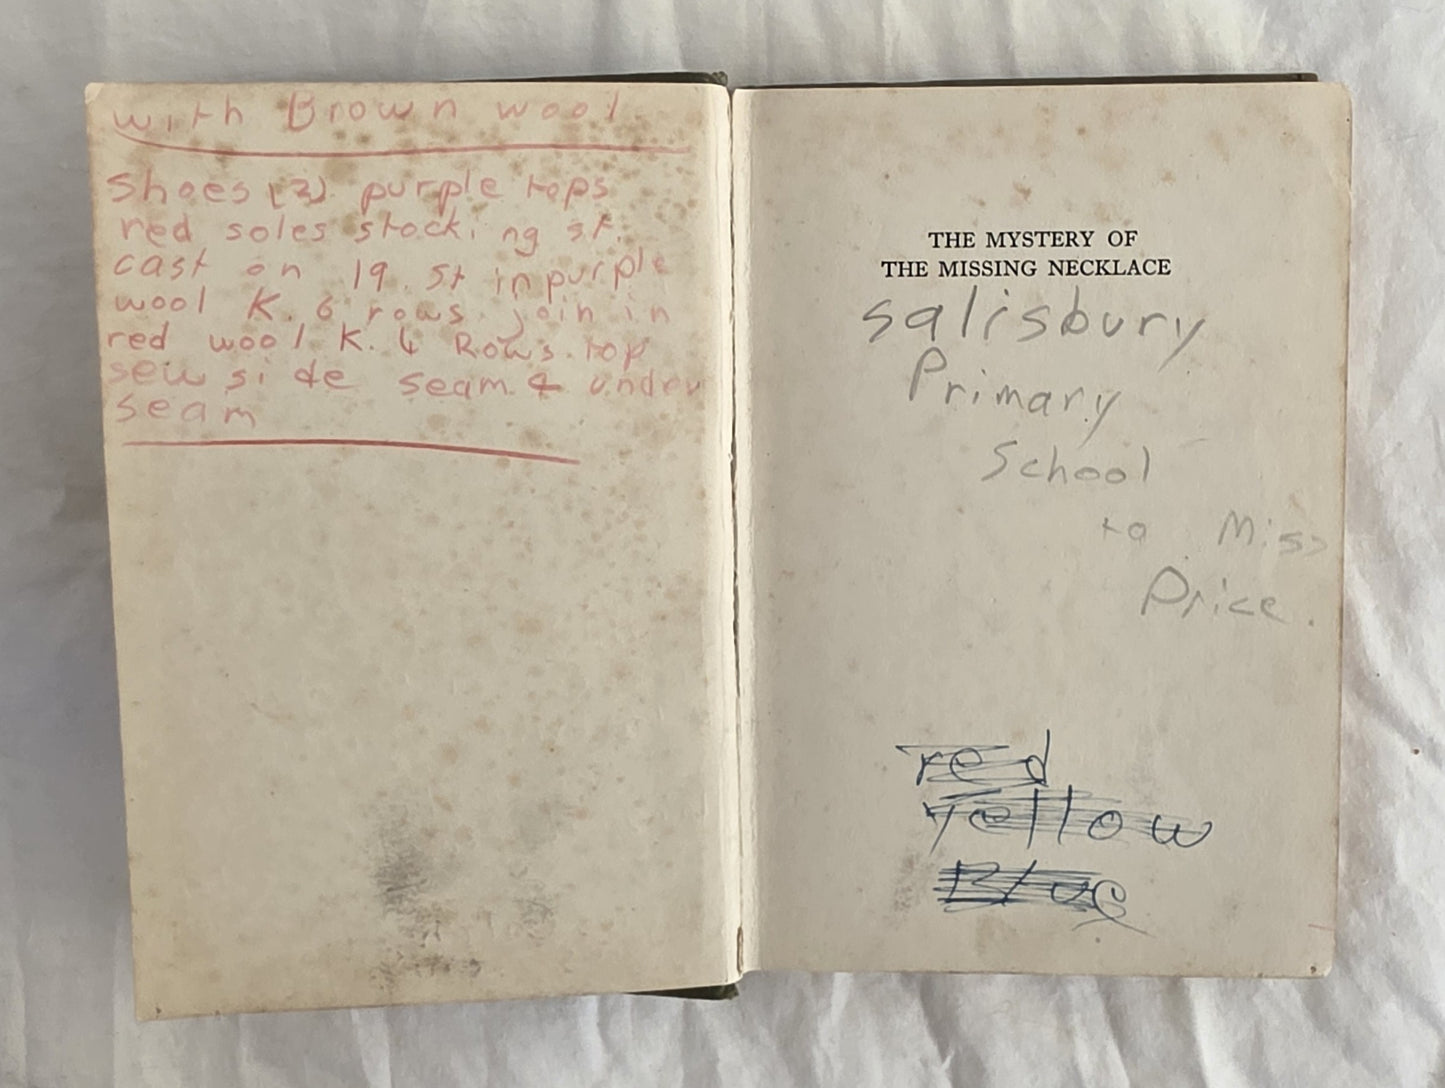 with Brown wool
Shoes (2) purple tops
red soles stocking st
cast on 19. st in purple
wool K. 6 rows. join in
red wool K. 4 Rows. top
sew side seam & under
seam
THE MYSTERY OF
THE MISSING NECKLACE
Salisbury
Primary
School
to Miss
Price.
red
yellow
Blue